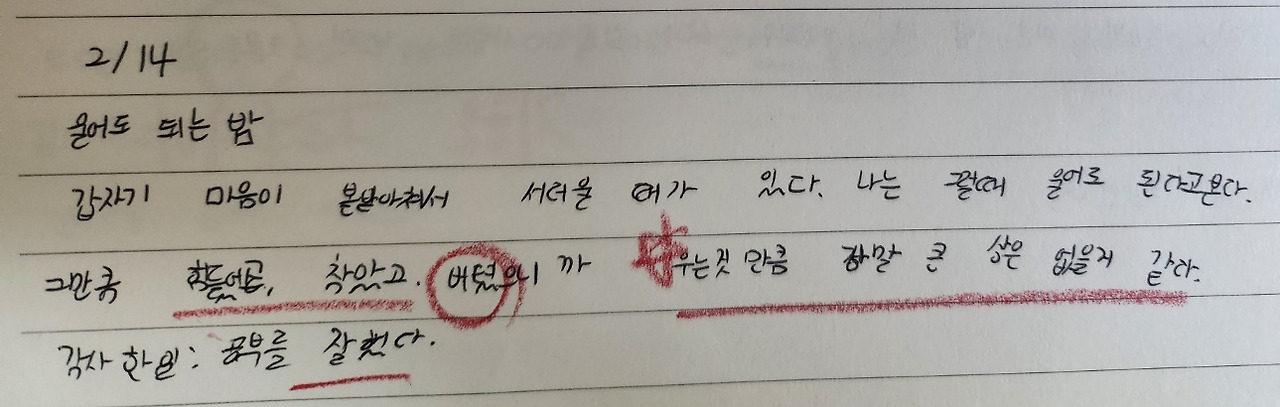 2/14
울어도 되는 밤
갑자기 마음이 북받아쳐서 서러울 때가 있다. 나는 그럴때 울어도 된다고본다.
그만큼 힘들었고, 참았고. 버텼으니 까 우는것 만큼 큰 상은 없을거 같다.
감사 한일: 공부를 잘 했다.